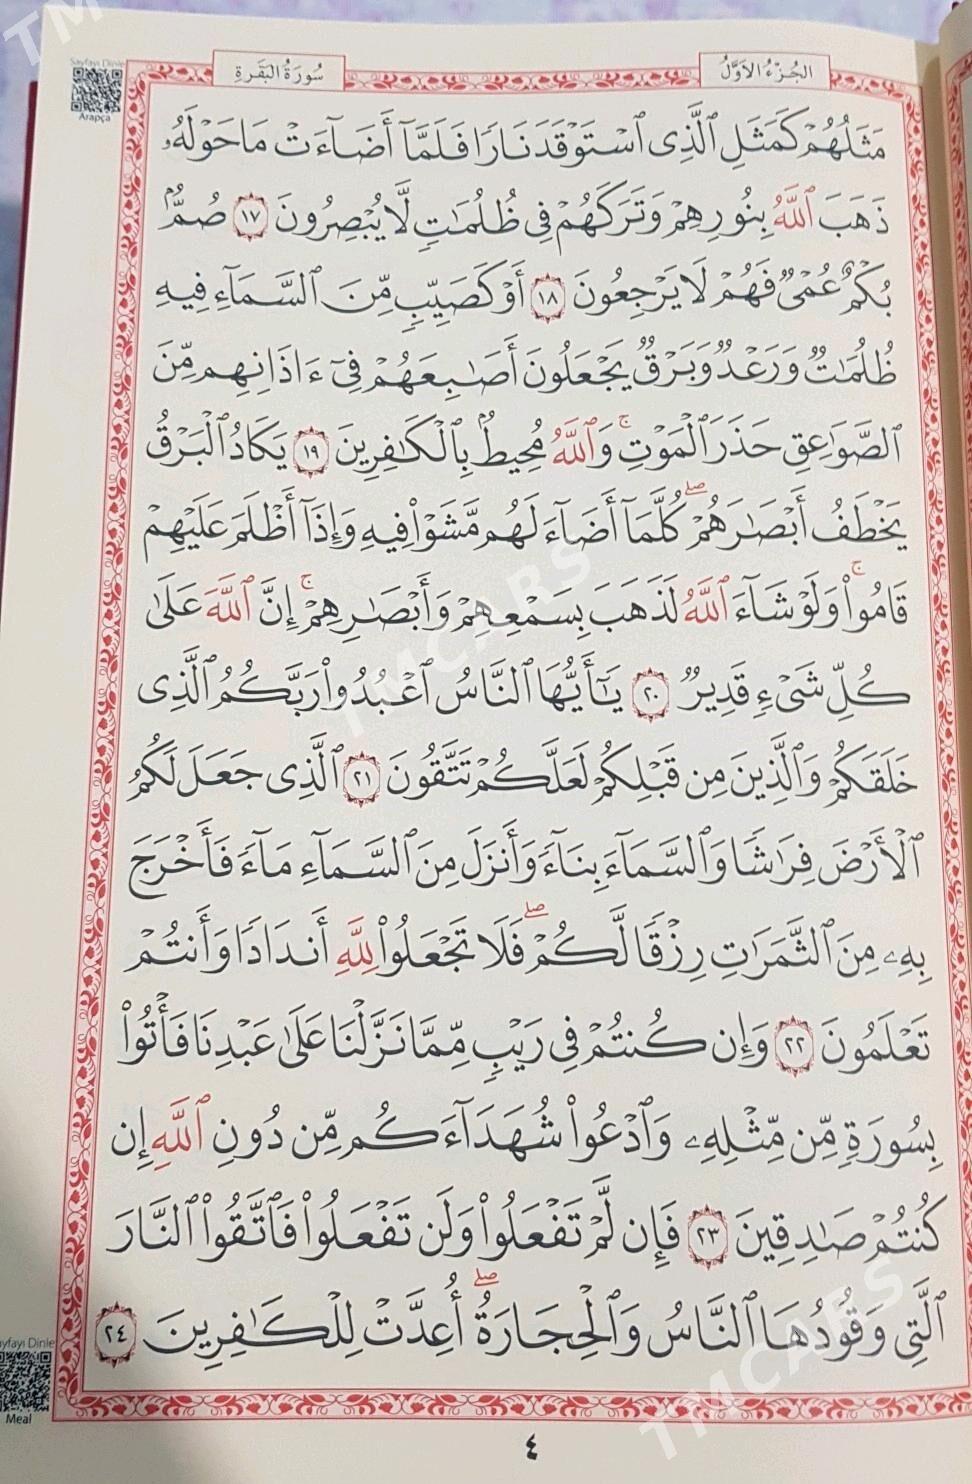 TMCARS
Sayfayı Dinle
Arapça
سُورَةُ الْبَقَرَةِ
الجُزْءُ الأَوَّلُ
مَثَلُهُمْ كَمَثَلِ ٱلَّذِى ٱسْتَوْقَدَ نَارًا فَلَمَّآ أَضَآءَتْ مَا حَوْلَهُۥ
ذَهَبَ ٱللَّهُ بِنُورِهِمْ وَتَرَكَهُمْ فِى ظُلُمَٰتٍ لَّا يُبْصِرُونَ ١٧ صُمٌّۢ
بُكْمٌ عُمْىٌ فَهُمْ لَا يَرْجِعُونَ ١٨ أَوْ كَصَيِّبٍ مِّنَ ٱلسَّمَآءِ فِيهِ
ظُلُمَٰتٌ وَرَعْدٌ وَبَرْقٌ يَجْعَلُونَ أَصَٰبِعَهُمْ فِىٓ ءَاذَانِهِم مِّنَ
ٱلصَّوَٰعِقِ حَذَرَ ٱلْمَوْتِ ۚ وَٱللَّهُ مُحِيطٌۢ بِٱلْكَٰفِرِينَ ١٩ يَكَادُ ٱلْبَرْقُ
يَخْطَفُ أَبْصَٰرَهُمْ ۖ كُلَّمَآ أَضَآءَ لَهُم مَّشَوْا۟ فِيهِ وَإِذَآ أَظْلَمَ عَلَيْهِمْ
قَامُوا۟ ۚ وَلَوْ شَآءَ ٱللَّهُ لَذَهَبَ بِسَمْعِهِمْ وَأَبْصَٰرِهِمْ ۚ إِنَّ ٱللَّهَ عَلَىٰ
كُلِّ شَىْءٍ قَدِيرٌ ٢٠ يَٰٓأَيُّهَا ٱلنَّاسُ ٱعْبُدُوا۟ رَبَّكُمُ ٱلَّذِى
خَلَقَكُمْ وَٱلَّذِينَ مِن قَبْلِكُمْ لَعَلَّكُمْ تَتَّقُونَ ٢١ ٱلَّذِى جَعَلَ لَكُمُ
ٱلْأَرْضَ فِرَٰشًا وَٱلسَّمَآءَ بِنَآءً وَأَنزَلَ مِنَ ٱلسَّمَآءِ مَآءً فَأَخْرَجَ
بِهِۦ مِنَ ٱلثَّمَرَٰتِ رِزْقًا لَّكُمْ ۖ فَلَا تَجْعَلُوا۟ لِلَّهِ أَندَادًا وَأَنتُمْ
تَعْلَمُونَ ٢٢ وَإِن كُنتُمْ فِى رَيْبٍ مِّمَّا نَزَّلْنَا عَلَىٰ عَبْدِنَا فَأْتُوا۟
بِسُورَةٍ مِّن مِّثْلِهِۦ وَٱدْعُوا۟ شُهَدَآءَكُم مِّن دُونِ ٱللَّهِ إِن
كُنتُمْ صَٰدِقِينَ ٢٣ فَإِن لَّمْ تَفْعَلُوا۟ وَلَن تَفْعَلُوا۟ فَٱتَّقُوا۟ ٱلنَّارَ
ٱلَّتِى وَقُودُهَا ٱلنَّاسُ وَٱلْحِجَارَةُ ۖ أُعِدَّتْ لِلْكَٰفِرِينَ ٢٤
TMCARS
ayfayı Dinle
Meal
TMCARS
٤